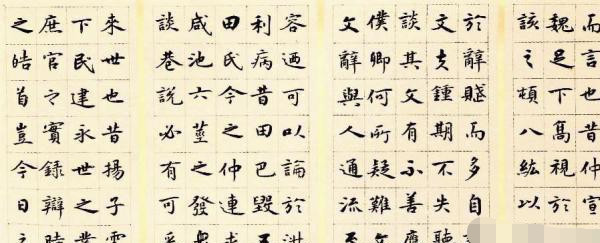 而言也昔仲宣
魏足下髙視於
該之頓八紘以
於辭賦而多自
文夫鍾期不失聽
談其文有不善應
僕卿何所疑難文
文辭與人通流
容迺可以論於淑
利病昔田巴毀五
田氏今之仲連求
咸池六莖之發衆
談巷說必有可采
來世也昔揚子雲
下民建永世之業
庶官之實錄辯時
之皓首豈今日之